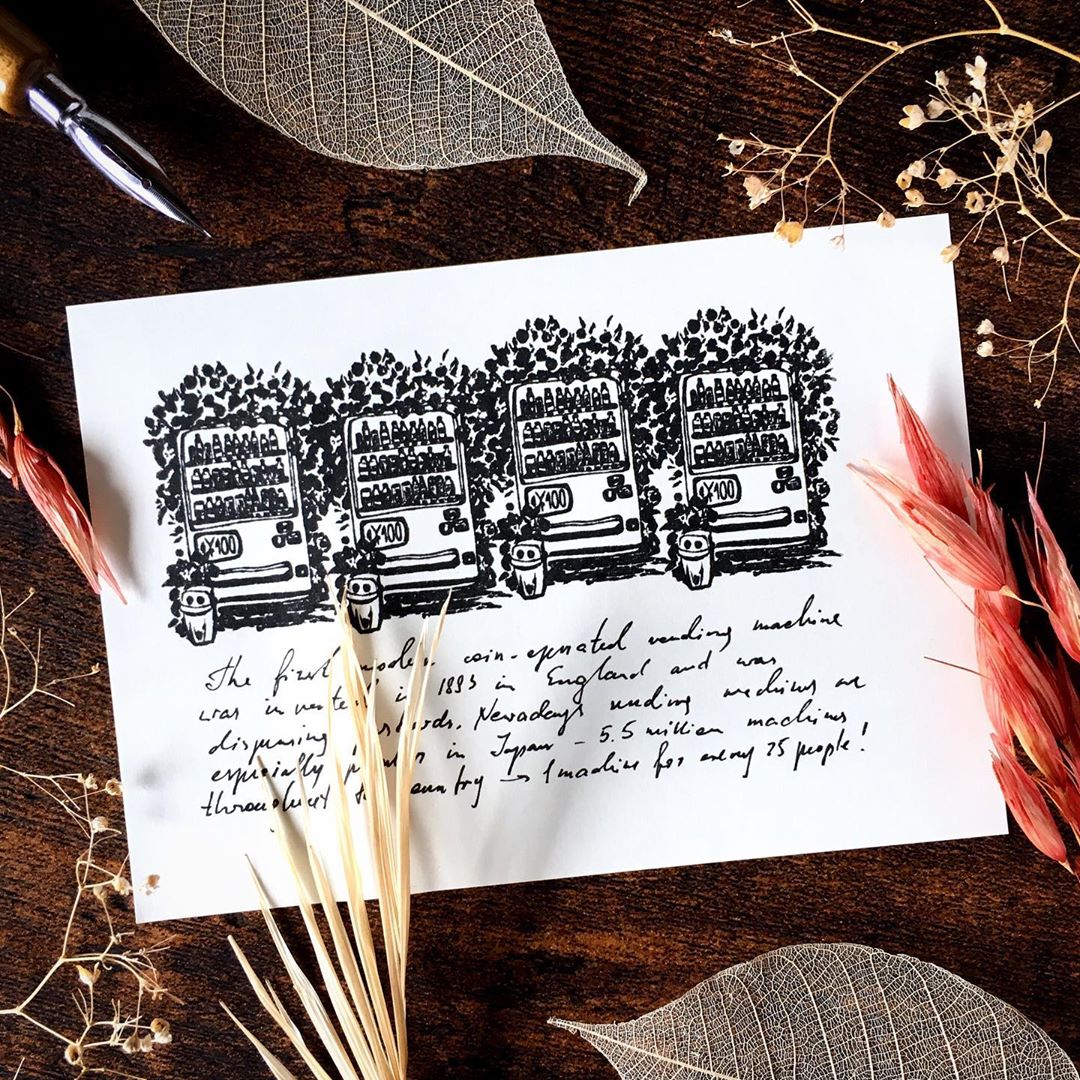 ¥100 ¥100 ¥100 ¥100
The first modern coin-operated vending machine
was invented in in England and was
dispensing Nowadays vending machines are
especially popular in Japan - 5.5 million machines
throughout the country → 1 machine for every 25 people!